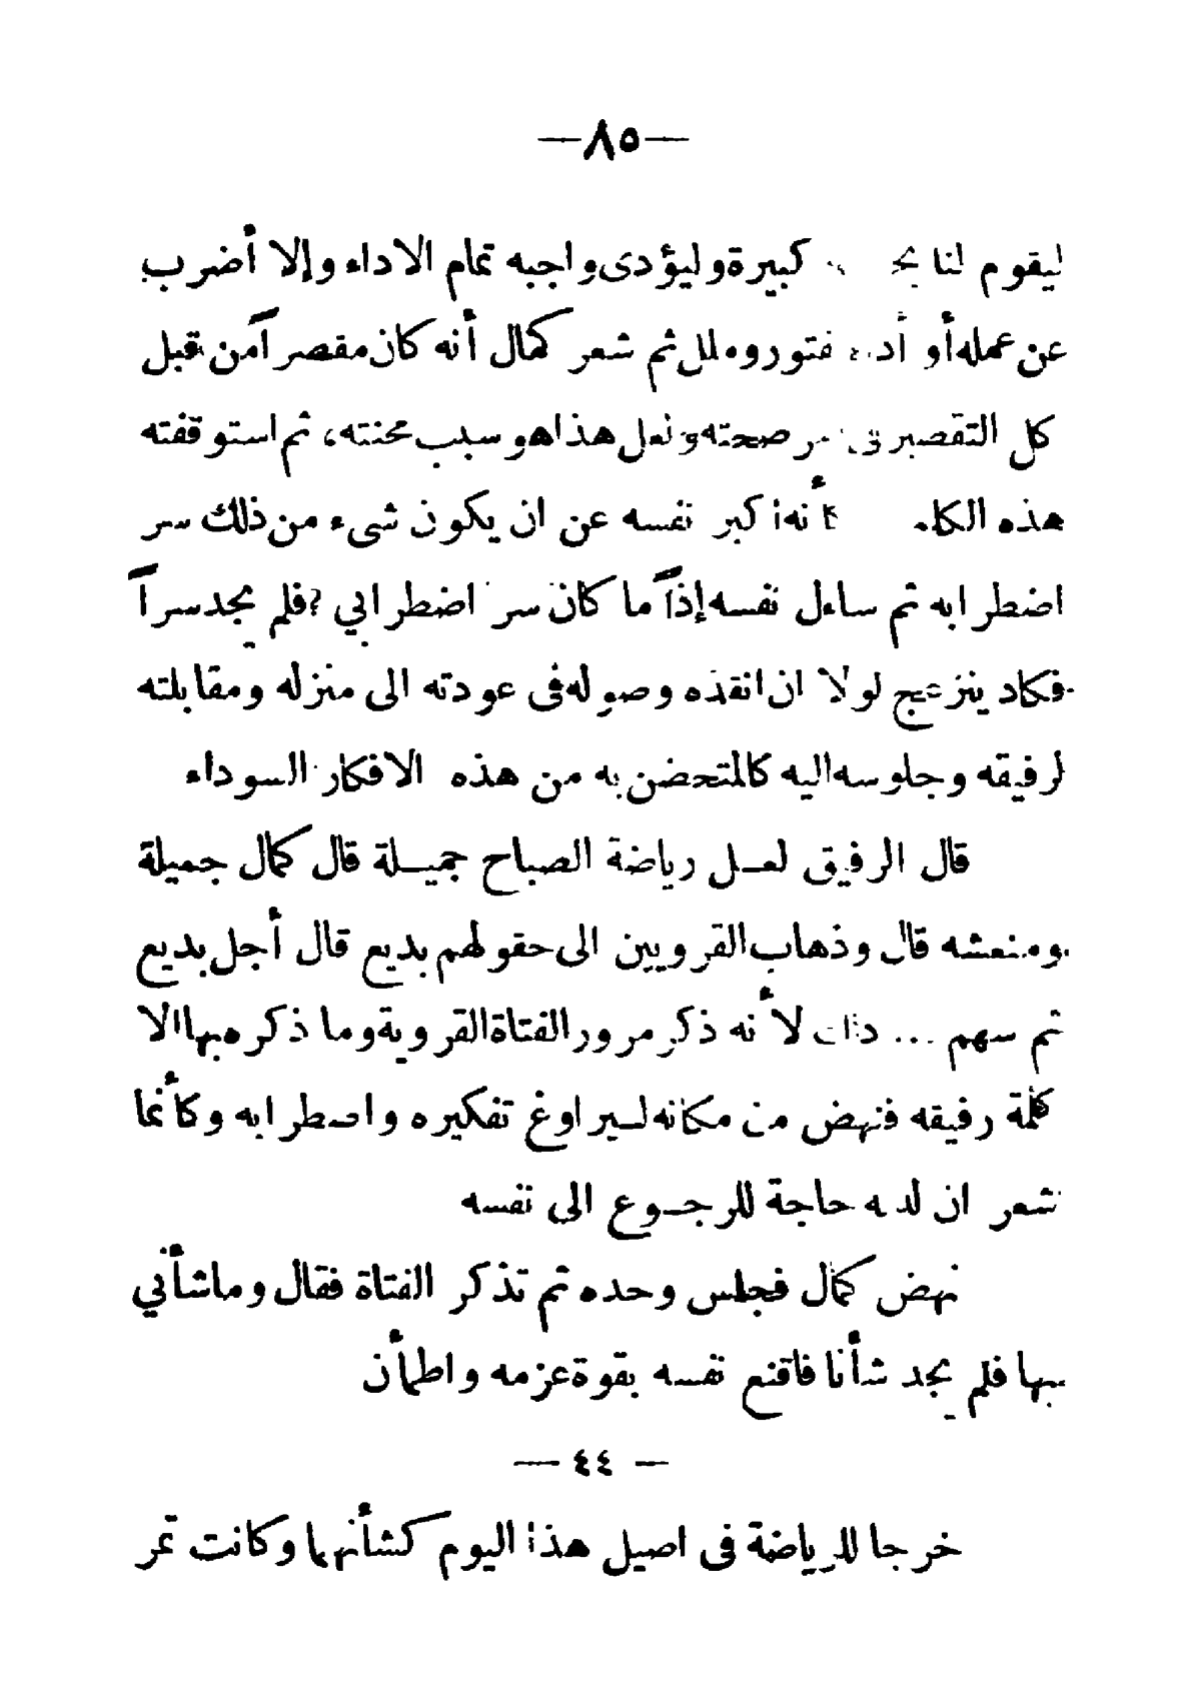 —٨٥—
ليقوم لنا كبيرة وليؤدى واجبه تمام الاداء وإلا أضرب
عن عمله أو فتور وملل ثم شعر كمال أنه كان مقصراً من قبل
كل التقصير صحته ولعل هذا هو سبب محنته، ثم استوقفته
هذه أنه أكبر نفسه عن ان يكون شىء من ذلك سر
اضطرابه ثم ساءل نفسه إذاً ما كان سر اضطرابي ? فلم يجد سراً
فكاد ينزعج لولا ان انقذه وصوله فى عودته الى منزله ومقابلته
لرفيقه وجلوسه اليه كالمتحضن به من هذه الافكار السوداء
قال الرفيق لعل رياضة الصباح جميلة قال كمال جميلة
ومنعشه قال وذهاب القرويين الى حقولهم بديع قال أجل بديع
ثم سهم ... ذلك لأنه ذكر مرور الفتاة القروية وما ذكره بها الا
كلمة رفيقه فنهض من مكانه ليراوغ تفكيره واضطرابه وكأنما
شعر ان لديه حاجة للرجوع الى نفسه
نهض كمال فجلس وحده ثم تذكر الفتاة فقال وما شأني
بها فلم يجد شأنا فاقنع نفسه بقوة عزمه واطمأن
— ٤٤ —
خرجا للرياضة فى اصيل هذا اليوم كشأنهما وكانت تمر